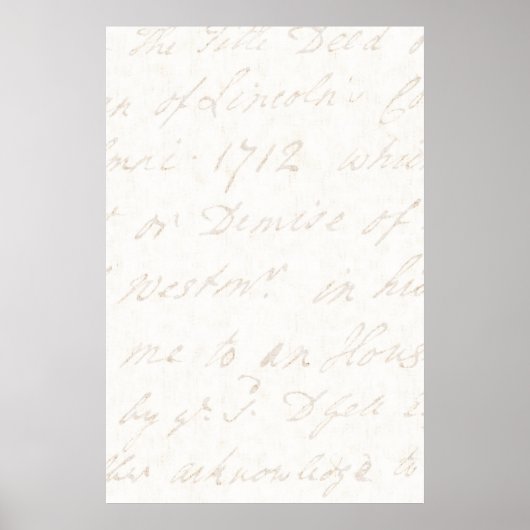 The Title Deed
of Lincoln's Co
1712 which
or Demise of
Westmr. in his
me to an Hous
by yr. P. Dyell
acknowledge to